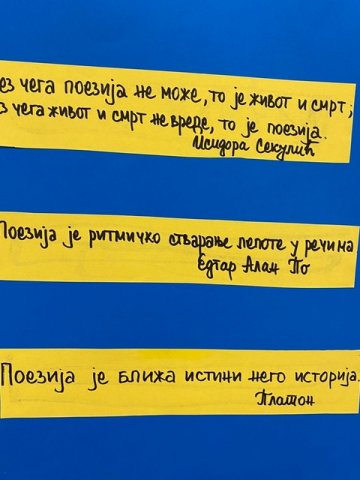 ез чега поезија не може, то је живот и смрт;
з чега живот и смрт не вреде, то је поезија.
Исидора Секулић
Поезија је ритмичко стварање лепоте у речима
Едгар Алан По
Поезија је ближа истини него историја.
Платон